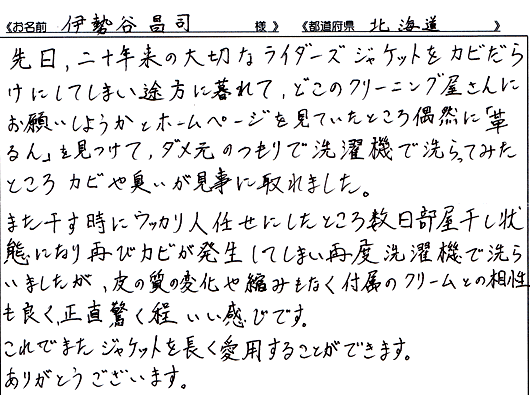 《お名前 伊勢谷昌司 様》 《都道府県 北海道 》
先日，二十年来の大切なライダーズジャケットをカビだら
けにしてしまい途方に暮れて，どこのクリーニング屋さんに
お願いしようかとホームページを見ていたところ偶然に「革
るん」を見つけて，ダメ元のつもりで洗濯機で洗ってみた
ところカビや臭いが見事に取れました。
また干す時にウッカリ人任せにしたところ数日部屋干し状
態になり再びカビが発生してしまい再度洗濯機で洗ら
いましたが，皮の質の変化や縮みもなく付属のクリームとの相性
も良く，正直驚く程いい感じです。
これでまたジャケットを長く愛用することができます。
ありがとうございます。